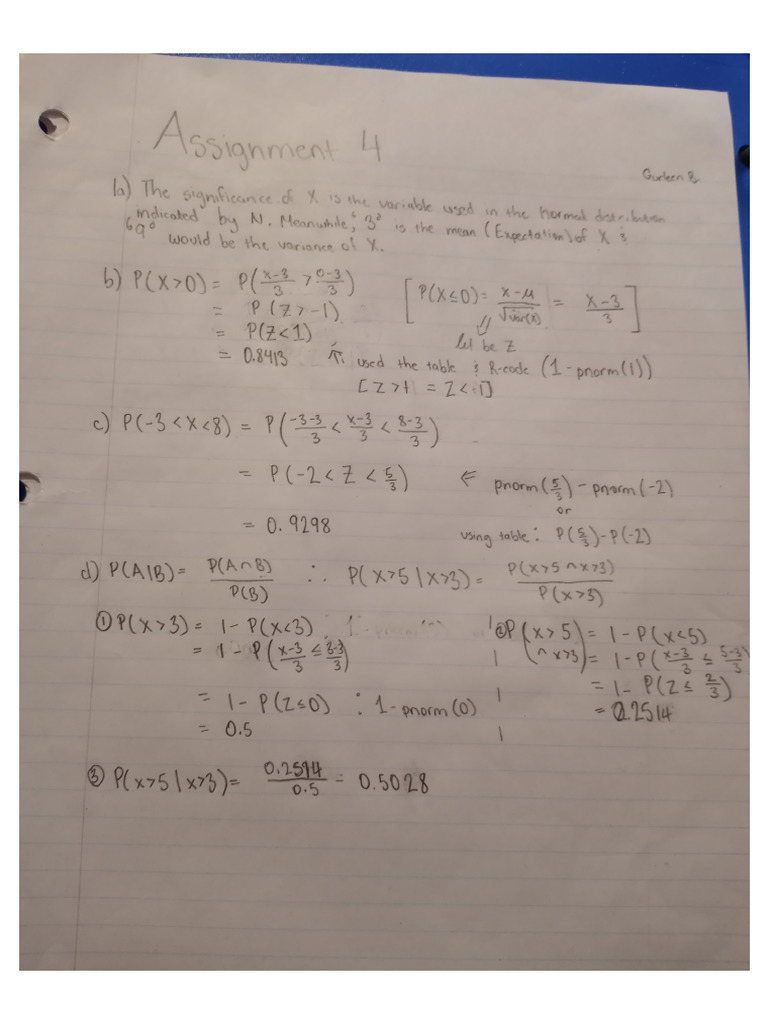 Assignment 4
Gurleen B
1a) The significance of X is the variable used in the normal distribution
indicated by N. Meanwhile, "3" is the mean (Expectation) of X &
"9" would be the variance of X.
b) P(X>0) = P(x-3/3 > 0-3/3) [P(X≤0) = x-μ/√var(x) = x-3/3]
= P(Z>-1) let be Z
= P(Z<1)
= 0.8413 ⇈ used the table & R-code (1-pnorm(1))
[Z>1 = Z<-1]
c) P(-3<X<8) = P(-3-3/3 < x-3/3 < 8-3/3)
= P(-2<Z<5/3) ⇐ pnorm(5/3)-pnorm(-2)
or
= 0.9298 using table: P(5/3)-P(-2)
d) P(A|B) = P(A∩B)/P(B) ∴ P(X>5|X>3) = P(X>5 ∩ X>3)/P(X>3)
① P(X>3) = 1-P(X<3) ② P(X>5 ∩ X>3) = 1-P(X<5)
= 1-P(x-3/3 ≤ 3-3/3) = 1-P(x-3/3 ≤ 5-3/3)
= 1-P(Z≤0) : 1-pnorm(0) = 1-P(Z≤2/3)
= 0.5 = 0.2514
③ P(X>5|X>3) = 0.2514/0.5 = 0.5028